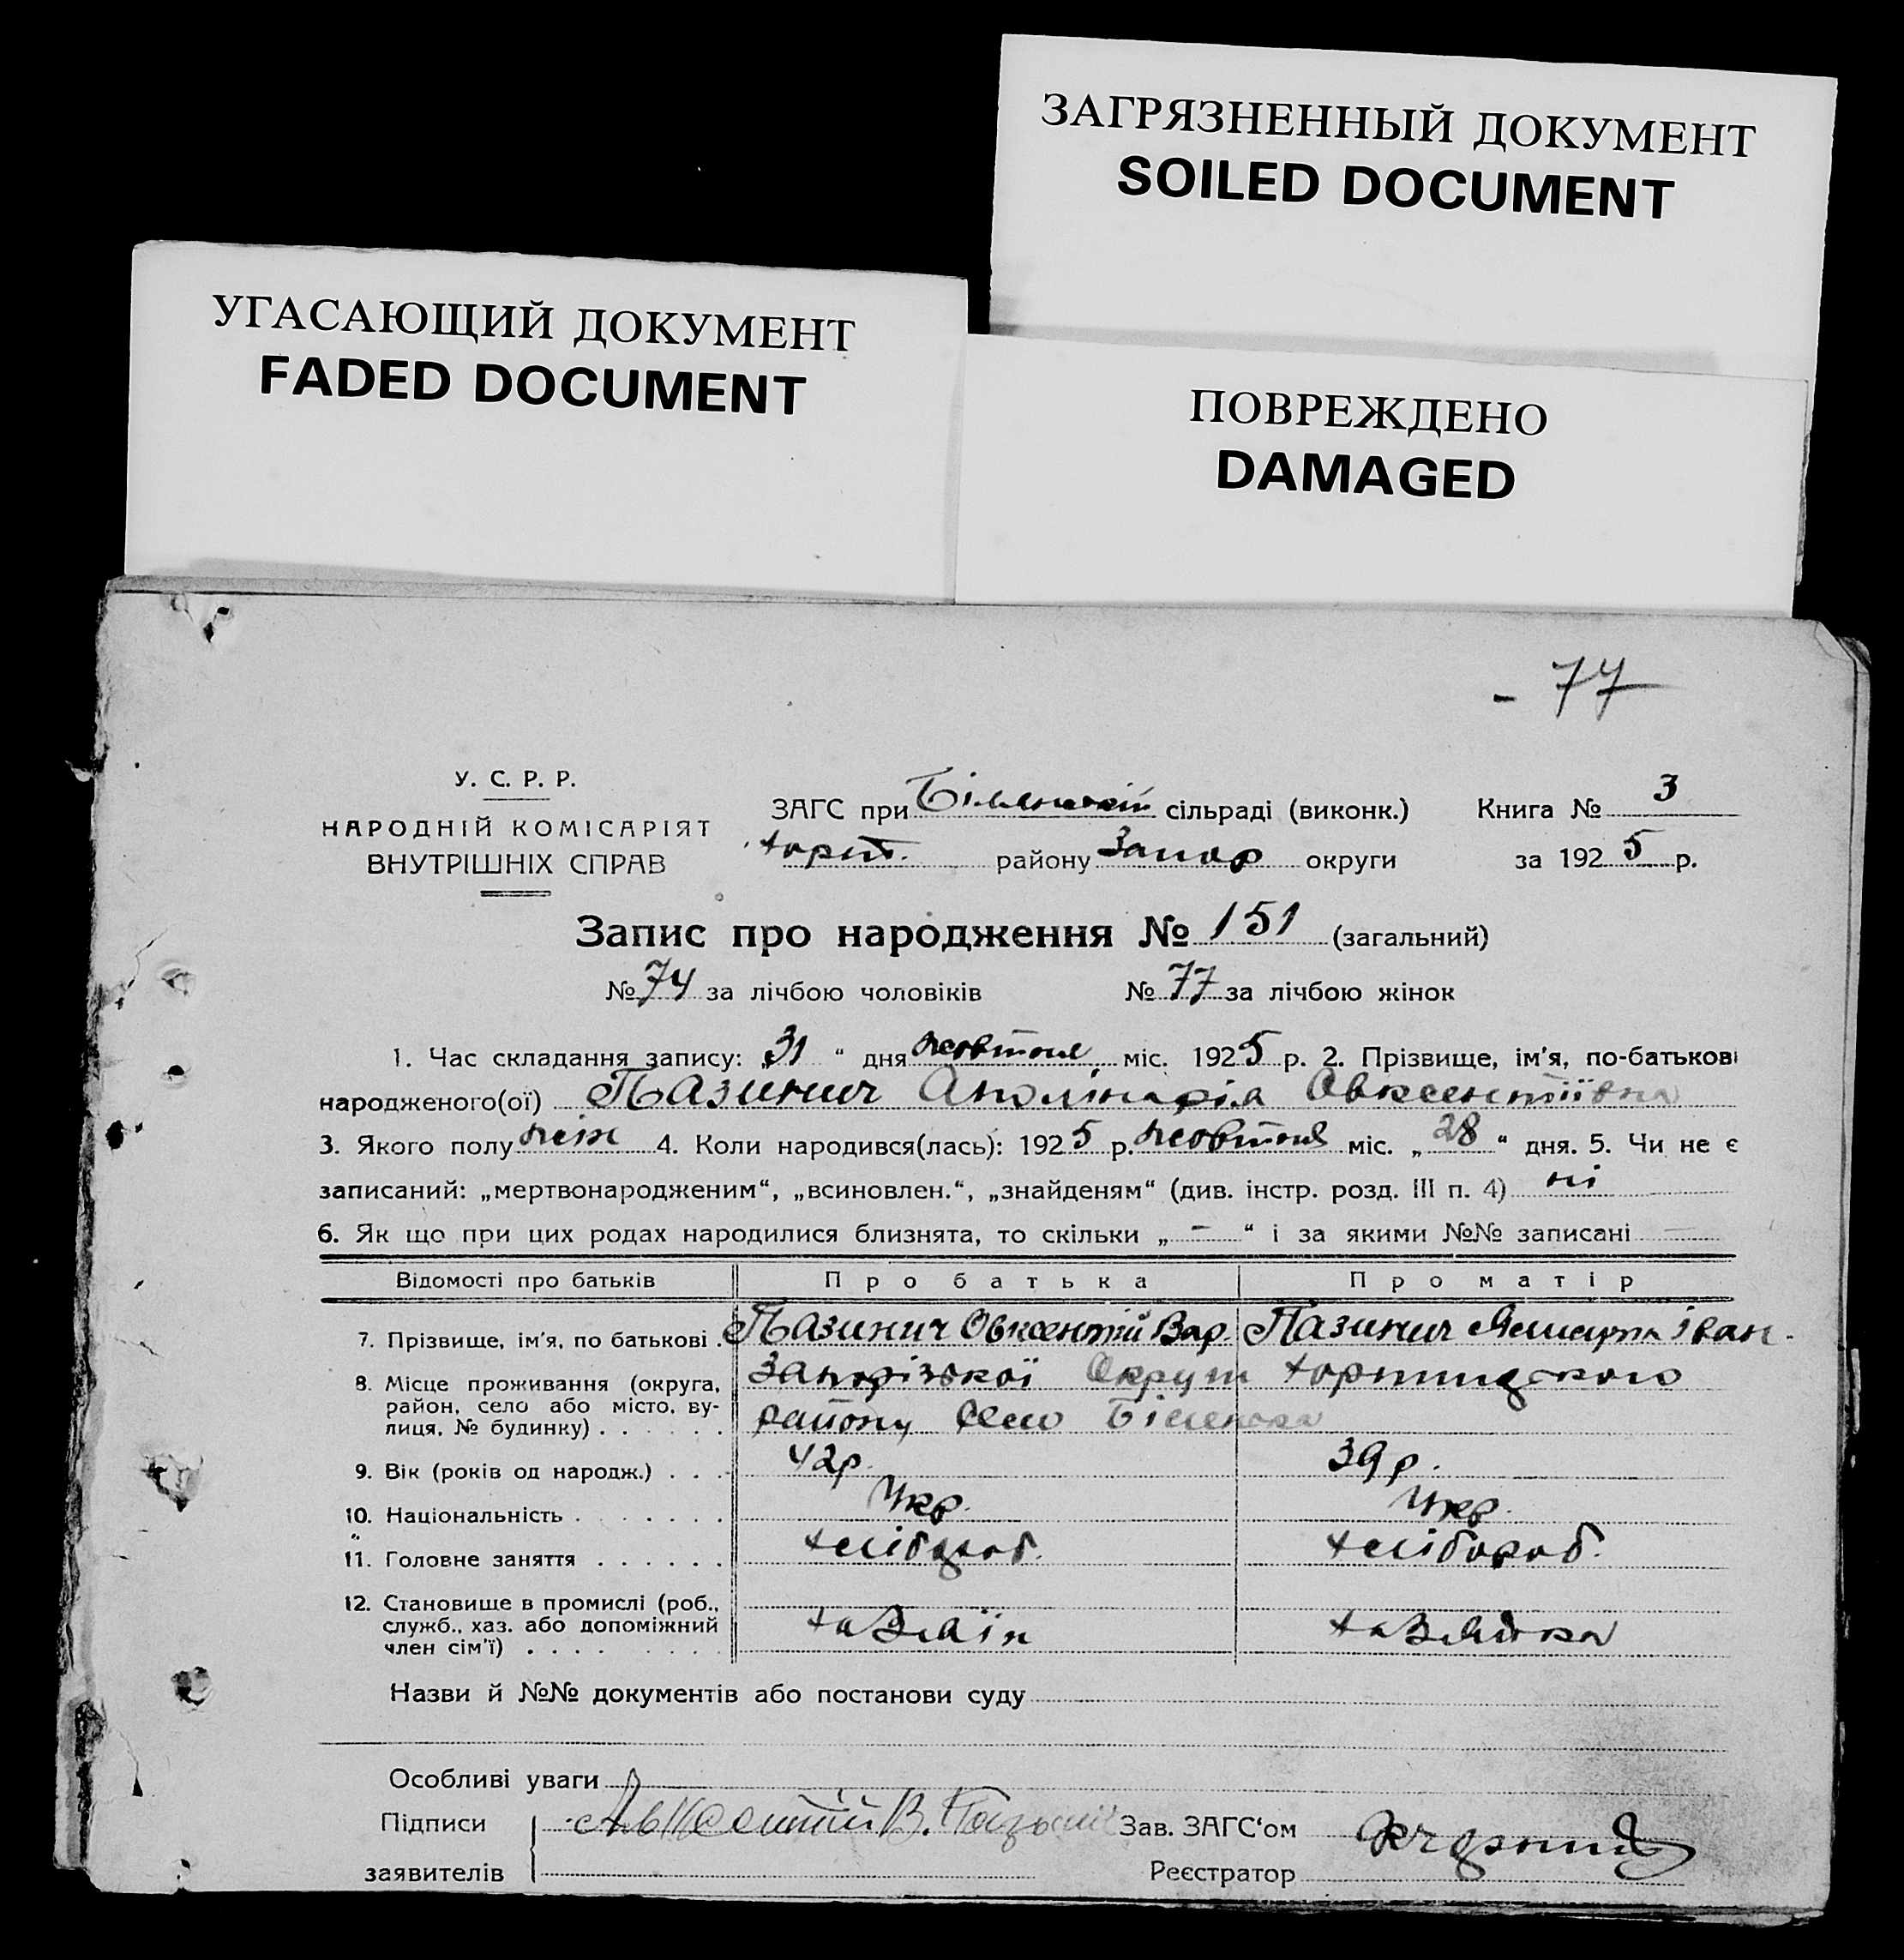 ЗАГРЯЗНЕННЫЙ ДОКУМЕНТ
SOILED DOCUMENT
УГАСАЮЩИЙ ДОКУМЕНТ
FADED DOCUMENT
ПОВРЕЖДЕНО
DAMAGED
- 77
У. С. Р. Р.
НАРОДНІЙ КОМІСАРІЯТ
ВНУТРІШНІХ СПРАВ
ЗАГС при Біленській сільраді (виконк.) Книга № 3
Хорт. району Запор округи за 1925 р.
Запис про народження № 151 (загальний)
№ 74 за лічбою чоловіків № 77 за лічбою жінок
1. Час складання запису: „31“ дня жовтня міс. 1925 р. 2. Прізвище, ім'я, по-батькові
народженого(ої) Пазинич Аполінарія Овксентіївна
3. Якого полу жін 4. Коли народився(лась): 1925 р. жовтня міс. „28“ дня. 5. Чи не є
записаний: „мертвонародженим“, „всиновлен.“, „знайденям“ (див. інстр. розд. III п. 4) ні
6. Як що при цих родах народилися близнята, то скільки „-“ і за якими №№ записані —
Відомості про батьків Про батька Про матір
7. Прізвище, ім'я, по батькові . Пазинич Овксентій Вар. Пазинич Іван.
8. Місце проживання (округа, район, село або місто, вулиця, № будинку) . . . . . . Запорізької Округи Хортицького
району село Біленька
9. Вік (років од народж.) . . . 42р. 39р.
10. Національність . . . . . . . Укр. Укр.
11. Головне заняття . . . . . . хлібороб. хлібороб.
12. Становище в промислі (роб., служб., хаз. або допоміжний член сім'ї) . . . . . . . . хазяїн хазяйка
Назви й №№ документів або постанови суду
Особливі уваги
Підписи Авксентій В. Зав. ЗАГС'ом
заявителів Реєстратор